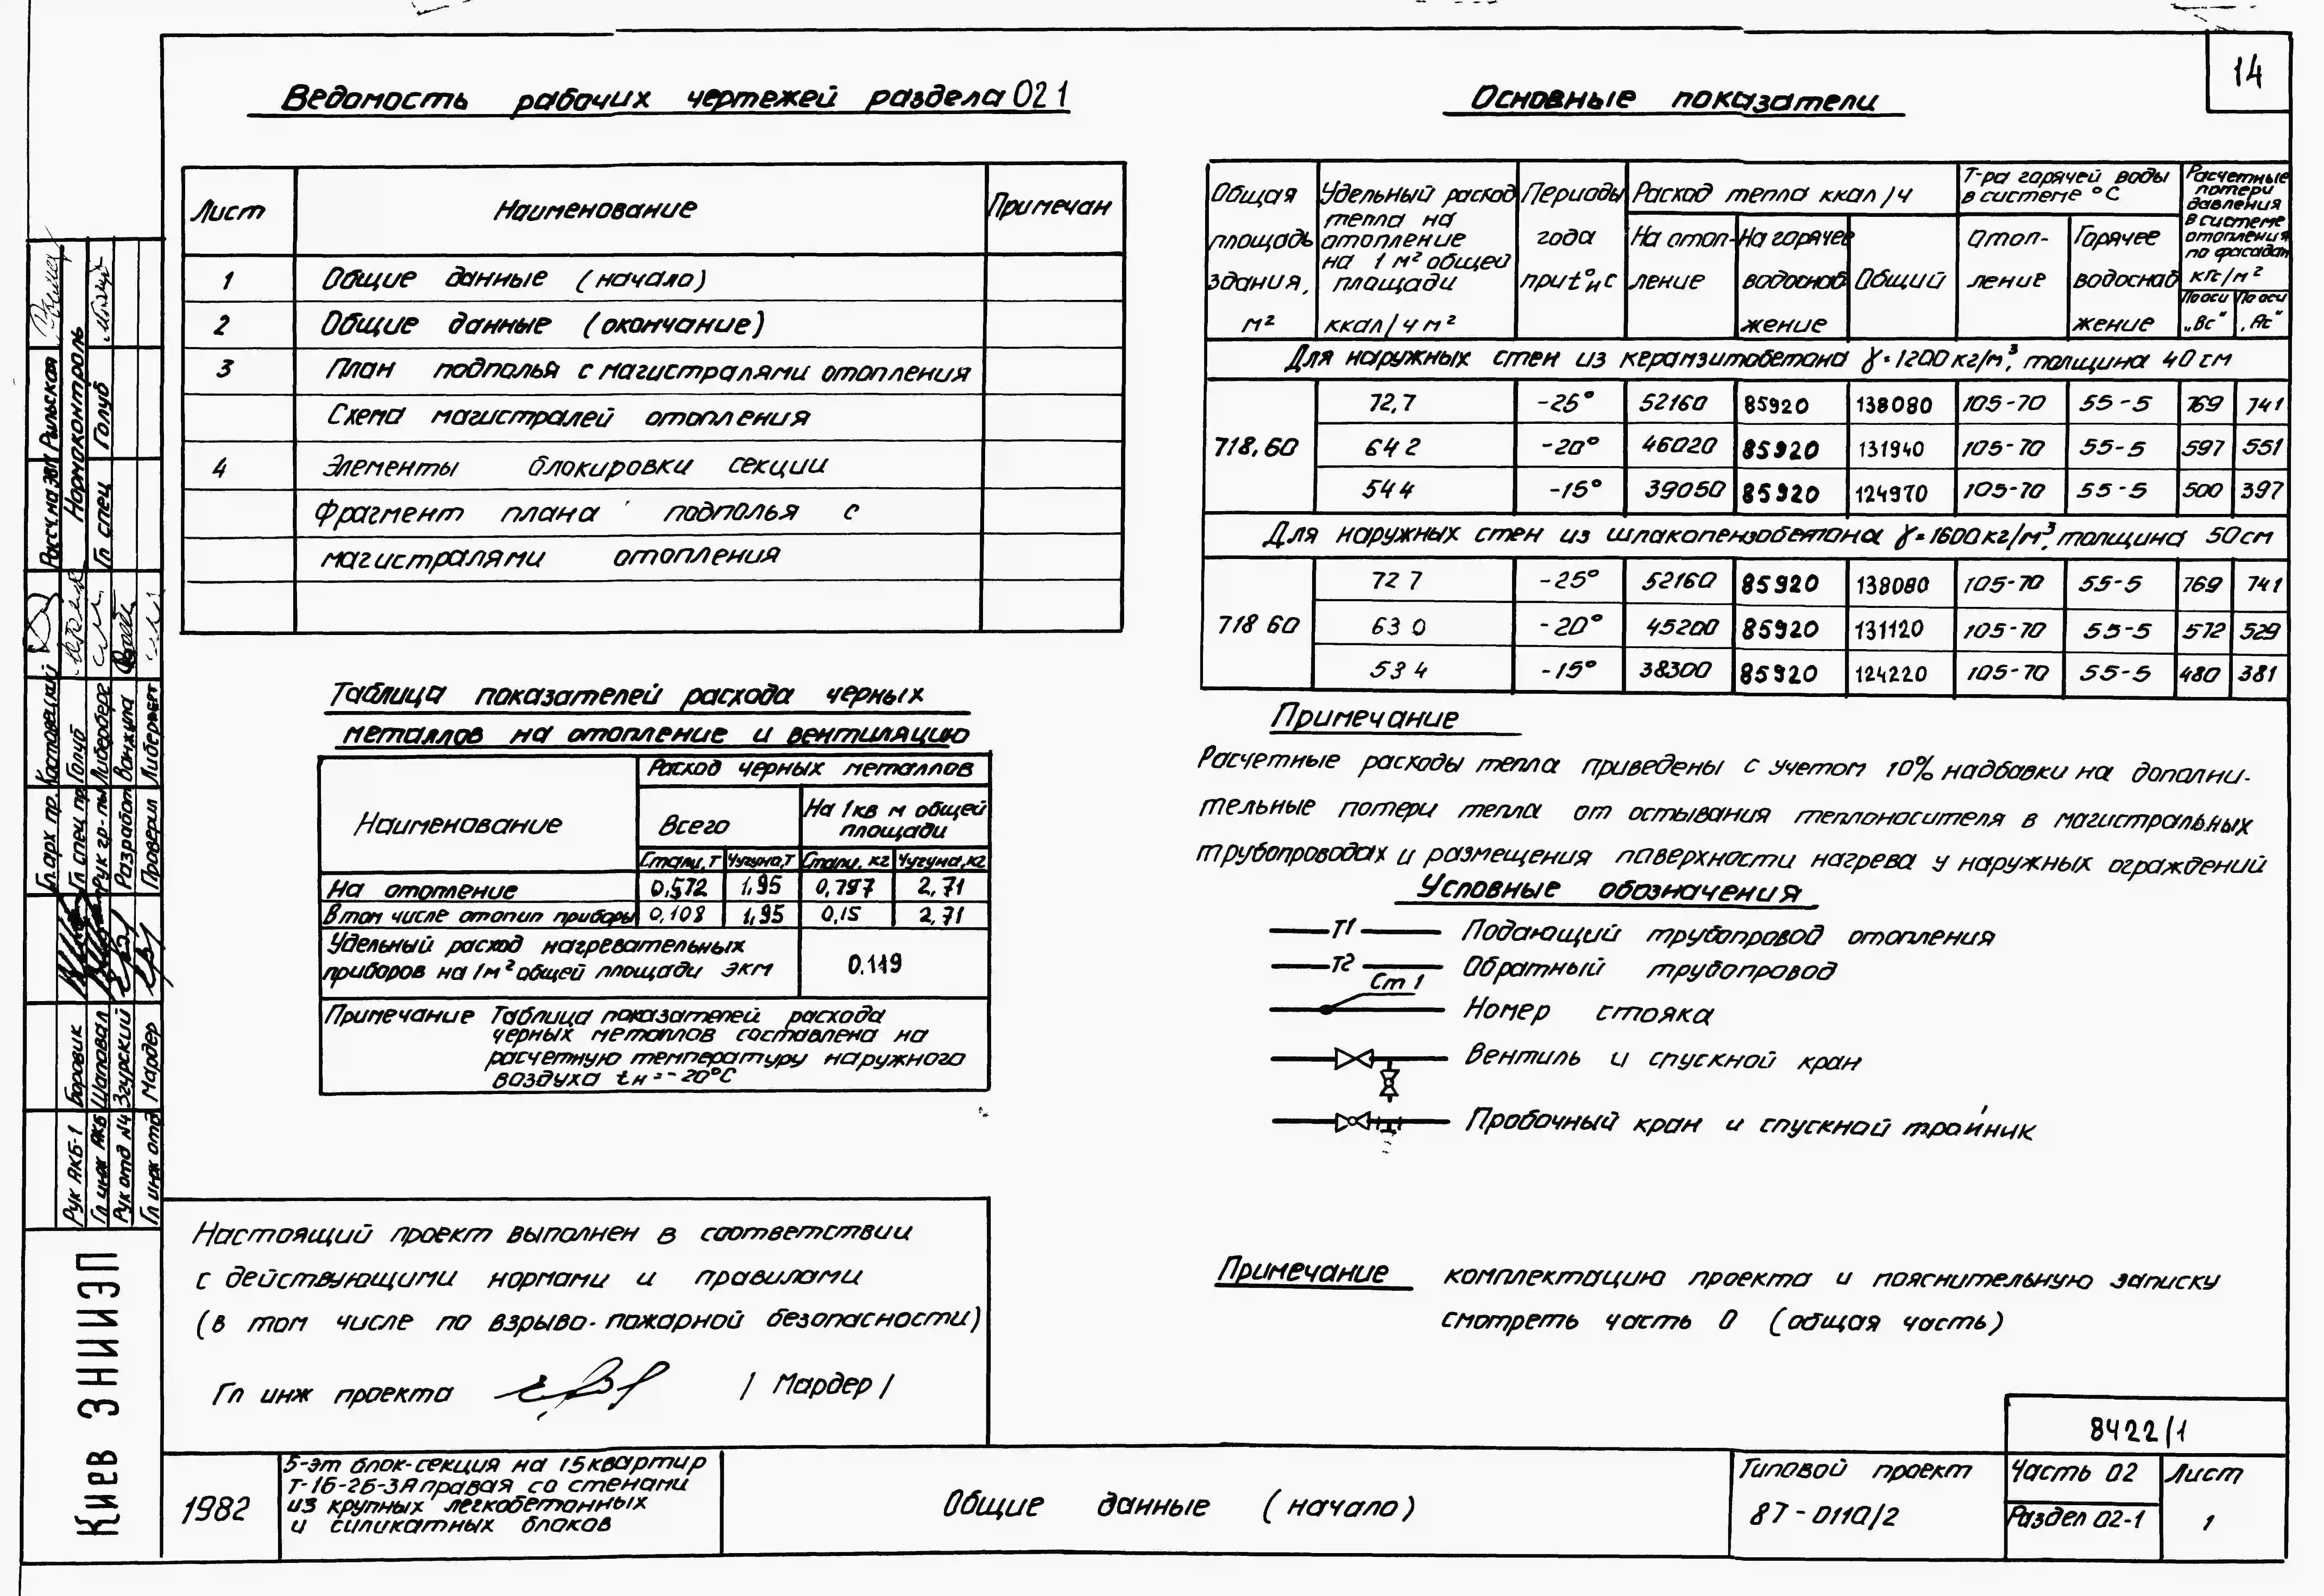 14
Ведомость рабочих чертежей раздела 02 1
Лист Наименование Примечан
1 Общие данные (начало)
2 Общие данные (окончание)
3 План подполья с магистралями отопления
Схема магистралей отопления
4 Элементы блокировки секции
Фрагмент плана подполья с
магистралями отопления
Таблица показателей расхода черных
металлов на отопление и вентиляцию
Наименование
Расход черных металлов
Всего
На 1кв м общей
площади
Стали, т Чугуна, т Стали, кг Чугуна, кг
На отопление 0,572 1,95 0,797 2,71
В том числе отопит приборы 0,108 1,95 0,15 2,71
Удельный расход нагревательных
приборов на 1м² общей площади экм 0.119
Примечание Таблица показателей расхода
черных металлов составлена на
расчетную температуру наружного
воздуха tн=-20°С
Настоящий проект выполнен в соответствии
с действующими нормами и правилами
(в том числе по взрыво-пожарной безопасности)
Гл инж проекта / Мардер /
Основные показатели
Общая
площадь
здания,
м²
Удельный расход
тепла на
отопление
на 1 м² общей
площади
ккал/ч м²
Периоды
года
при t°н с
Расход тепла ккал/ч
На отоп-
ление
На горячее
водоснаб
жение
Общий
Т-ра горячей воды
в системе °С
Отоп-
ление
Горячее
водоснаб
жение
Расчетные
потери
давления
в системе
отопления
по фасадам
кгс/м²
По оси
„Вс“
По оси
„Ас“
Для наружных стен из керамзитобетона γ=1200кг/м³, толщина 40 см
718,60
72,7 -25° 52160 85920 138080 105-70 55-5 769 741
64 2 -20° 46020 85920 131940 105-70 55-5 597 551
54 4 -15° 39050 85920 124970 105-70 55-5 500 397
Для наружных стен из шлакопемзобетона γ=1600кг/м³, толщина 50см
718 60
72 7 -25° 52160 85920 138080 105-70 55-5 769 741
63 0 -20° 45200 85920 131120 105-70 55-5 572 529
53 4 -15° 38300 85920 124220 105-70 55-5 480 381
Примечание
Расчетные расходы тепла приведены с учетом 10% надбавки на дополни-
тельные потери тепла от остывания теплоносителя в магистральных
трубопроводах и размещения поверхности нагрева у наружных ограждений
Условные обозначения
Т1 Подающий трубопровод отопления
Т2 Обратный трубопровод
Ст 1 Номер стояка
Вентиль и спускной кран
Пробочный кран и спускной тройник
Примечание комплектацию проекта и пояснительную записку
смотреть часть 0 (общая часть)
8422/1
1982
5-эт блок-секция на 15 квартир
Т-1Б-2Б-3А правая со стенами
из крупных легкобетонных
и силикатных блоков
Общие данные (начало)
Типовой проект
87-0110/2
Часть 02
Раздел 02-1
Лист
1
Киев ЗНИИЭП
Рук АКБ-1 Боровик
Гл инж АКБ Шаповал
Рук отд №4 Згурский
Гл инж отд Мардер
Гл.арх пр.
Гл спец пр Голуб
Рук гр-пы Либерберг
Разработ Ванжула
Проверил
Рассч.на ЭВМ Рыльская
Нормоконтроль
Гл спец Голуб